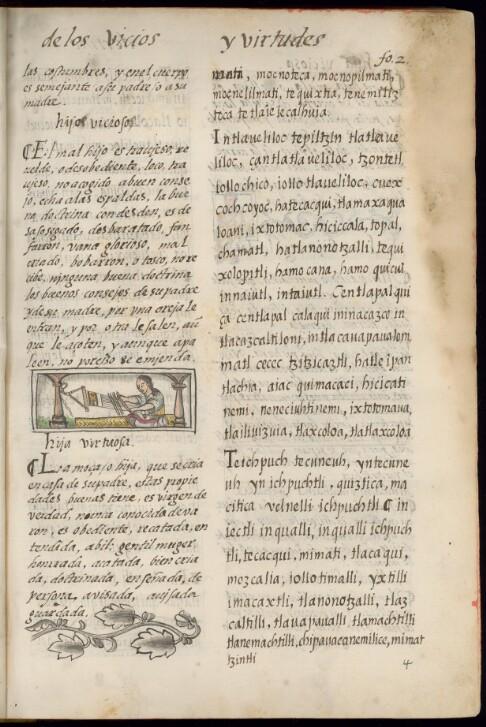 de los vicios
y virtudes
fo. 2.
las costumbres, y en el cuerpo
es semejante a su padre, o a su
madre.
hijos viciosos
El mal hijo es travieso, re
velde, o desobediente, loco, tra
uieso, no acogido a buen conse
jo, echa alas espaldas, la bue
na doctrina con desden, es de
sasosegado, desbaratado, fan
farron, vana glorioso, mal
criado, bobarron, o tosco, no re
cibe, ninguna buena doctrina
los buenos consejos de su padre
y de su madre, por una oreja le
entran, y por otra le salen, aũ
que le açoten, y aunque apa
leen, no por esso se emienda.
hija virtuosa.
La moça, o hija, que se cria
en casa de su padre, estas propie
dades buenas tiene, es virgen de
verdad, nunca conocida de va
ron, es obediente, recatada, en
tendida, abil, gentil muger
honrrada, acatada, bien cria
da, doctrinada, enseñada, de
persona, auisada, auisada
guardada.
mati, mocnoteca, mocnopilmati,
mocnelilmati, te quixtia, tenemiliz
toca te tlaieiecalhuia.
Intlaueliloc tepiltzin tlatlaue
liloc, çan tlatlaueliloc, tzontetl,
iollochico, iollotlaueliloc, cuex
cochcoyoc, hatecacqui, tlamaxaqua
loani, ixtotomac, hiciccala, topal,
chamatl, hatlanonotzalli, tequi
xolopitli, hamo cana, hamo quicui,
innaiutl, intaiutl. Centlapal qui
ça centlapal calaqui in inacazco in
tlacazcaltiloni, intlacauapaualoni
matl cecec tzitzicaztli, hatle ipan
tlachia, aiac quimacaci, hicicati
nemi, neneciuhtinemi, ixtotomaua,
tlailiuizuia, tlaxcoloa, tlatlaxcoloa
Teichpuch tecuneuh, yn tecune
uh yn ichpuchtli, quiztica, ma
citica vel nelli ichpuchtli in
iectli in qualli, in qualli ichpuch
tli, tecacqui, mimati, tlacaqui,
mozcalia, iollotimalli, yxtilli
imacaxtli, tlanonotzalli, tlaz
caltilli, tlauapaualli tlamachtilli
tlanemachtilli, chipauacanemilice, mimat
tzintli
4